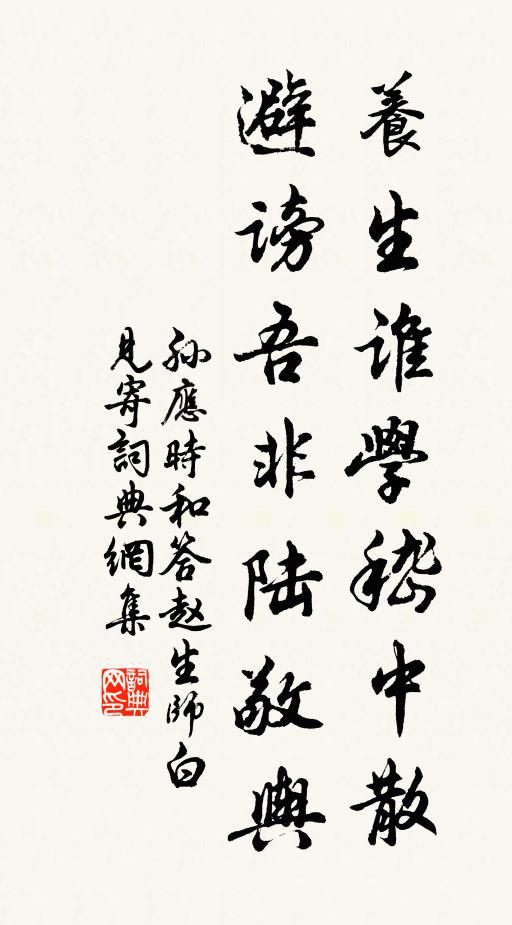 養生誰學嵇中散
避謗吾非陆敬輿
孙應時和答赵生師白
見寄詞典網集
詞典
网印